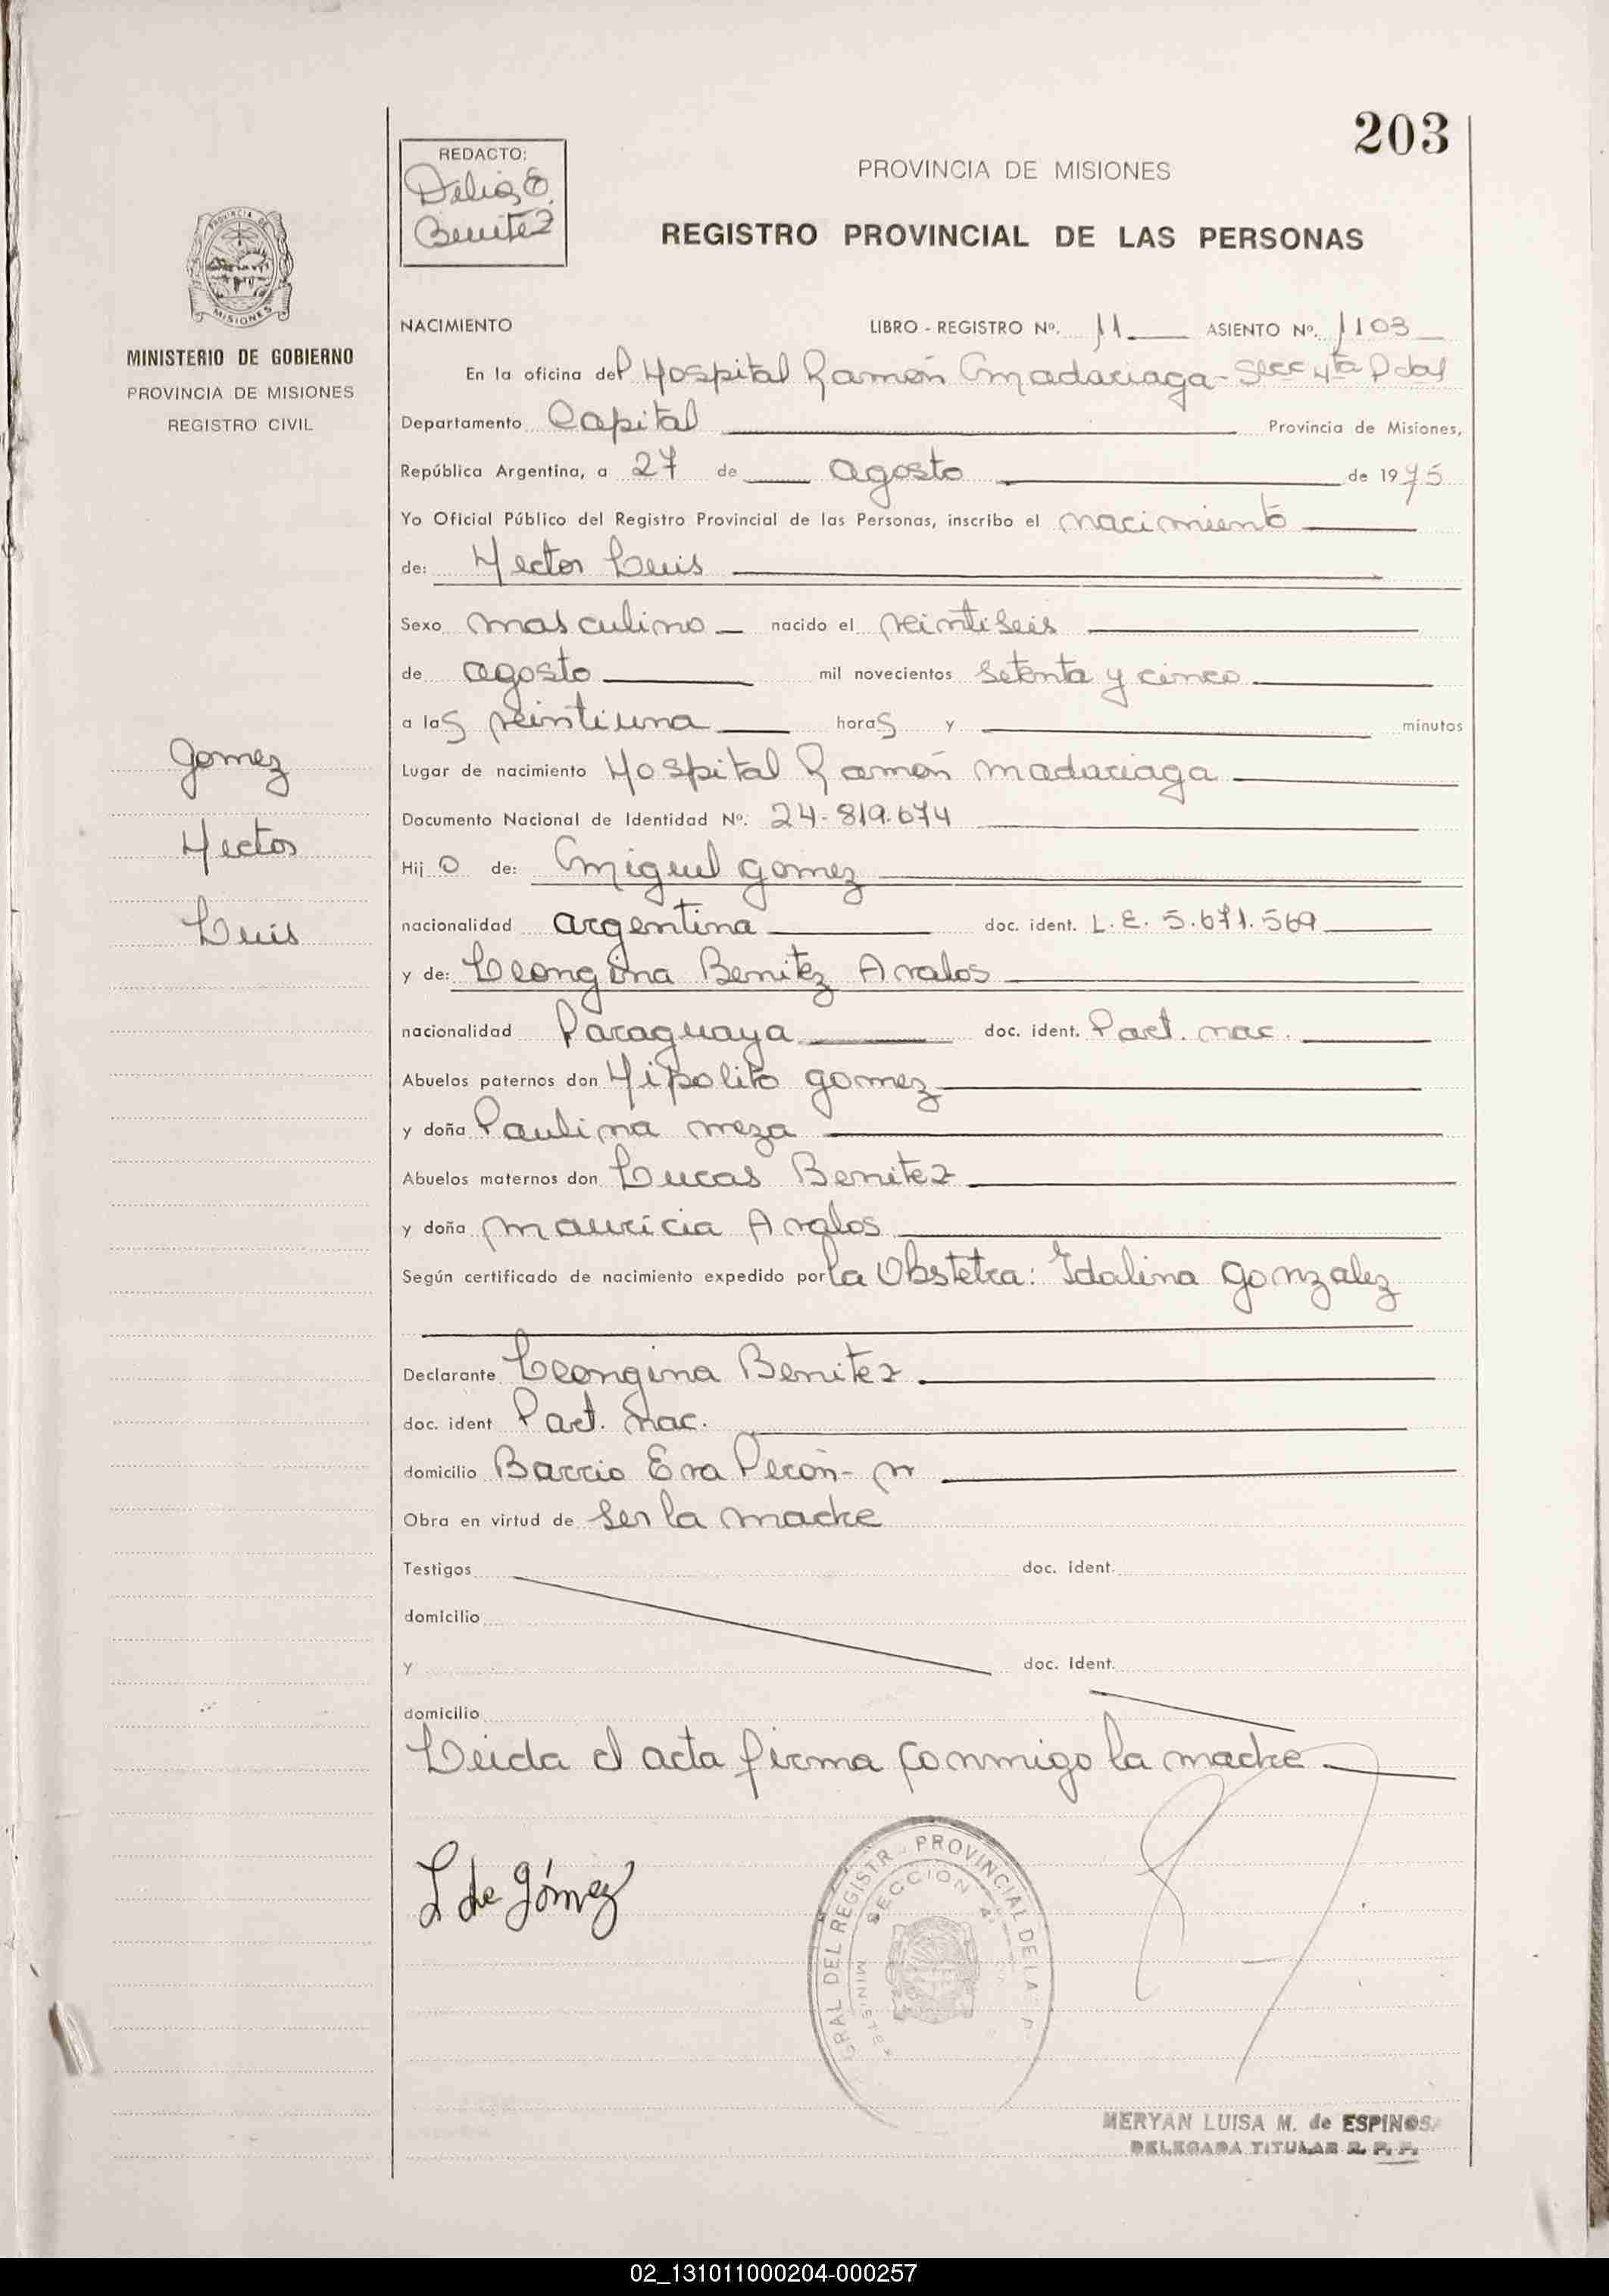 203
REDACTO:
Delia E.
Benitez
PROVINCIA DE MISIONES
REGISTRO PROVINCIAL DE LAS PERSONAS
PROVINCIA DE
MISIONES
MINISTERIO DE GOBIERNO
PROVINCIA DE MISIONES
REGISTRO CIVIL
Gomez
Hector
Luis
NACIMIENTO LIBRO - REGISTRO Nº. 11 ASIENTO Nº. 1103
En la oficina del Hospital Ramón Madariaga - Secc 4ta Pdas
Departamento Capital Provincia de Misiones,
República Argentina, a 27 de agosto de 1975
Yo Oficial Público del Registro Provincial de las Personas, inscribo el nacimiento
de: Hector Luis
Sexo masculino nacido el veintiseis
de agosto mil novecientos setenta y cinco
a las veintiuna horas y minutos
Lugar de nacimiento Hospital Ramón Madariaga
Documento Nacional de Identidad Nº. 24-819.674
Hijo de: Miguel Gomez
nacionalidad argentina doc. ident. L.E. 5.671.569
y de: Leongina Benitez Avalos
nacionalidad Paraguaya doc. ident. Part. nac.
Abuelos paternos don Hipolito Gomez
y doña Paulina meza
Abuelos maternos don Lucas Benitez
y doña Mauricia Avalos
Según certificado de nacimiento expedido por la Obstetra: Idalina Gonzalez
Declarante Leongina Benitez
doc. ident Part. nac.
domicilio Barrio Eva Perón-
Obra en virtud de ser la madre
Testigos doc. ident.
domicilio
y doc. ident.
domicilio
Leida el acta firma conmigo la madre
L de Gómez
GRAL DEL REGISTR - PROVINCIAL DE LA P
SECCION 4ª
MINISTE
MERYAN LUISA M. de ESPINOSA
DELEGADA TITULAR R. P. P.
02_131011000204-000257